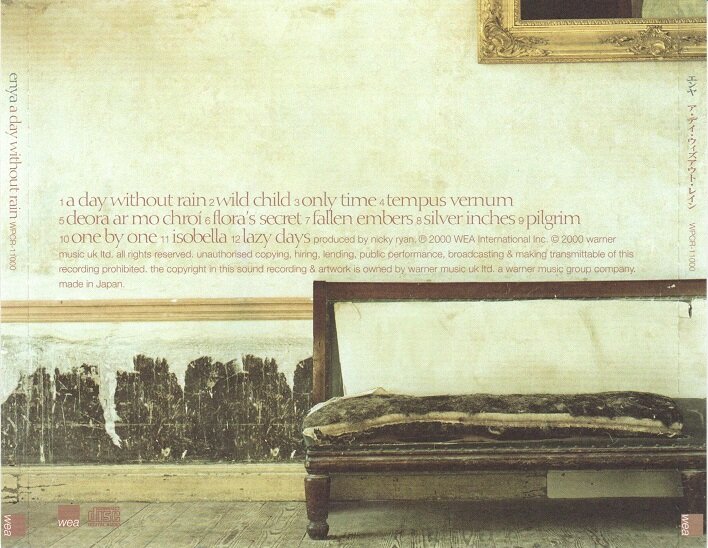 enya a day without rain WPCR-11000
1 a day without rain 2 wild child 3 only time 4 tempus vernum
5 deora ar mo chroí 6 flora's secret 7 fallen embers 8 silver inches 9 pilgrim
10 one by one 11 isobella 12 lazy days produced by nicky ryan. ℗ 2000 WEA International Inc. © 2000 warner
music uk ltd. all rights reserved. unauthorised copying, hiring, lending, public performance, broadcasting & making transmittable of this
recording prohibited. the copyright in this sound recording & artwork is owned by warner music uk ltd. a warner music group company.
made in Japan.
エンヤ ア・デイ・ウィズアウト・レイン WPCR-11000
wea
wea
disc
DIGITAL AUDIO
wea